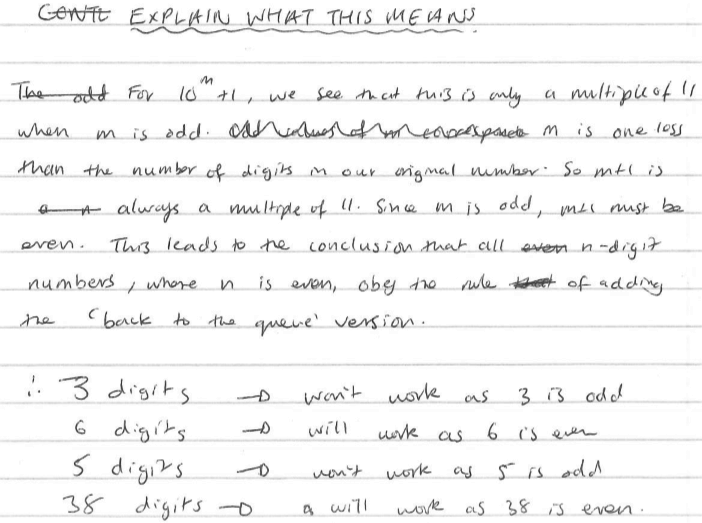 EXPLAIN WHAT THIS MEANS
For 10^m+1, we see that this is only a multiple of 11
when m is odd. m is one less
than the number of digits in our original number. So m+1 is
always a multiple of 11. Since m is odd, m+1 must be
even. This leads to the conclusion that all n-digit
numbers, where n is even, obey the rule of adding
the 'back to the queue' version.
∴ 3 digits → won't work as 3 is odd
6 digits → will work as 6 is even
5 digits → won't work as 5 is odd
38 digits → will work as 38 is even.